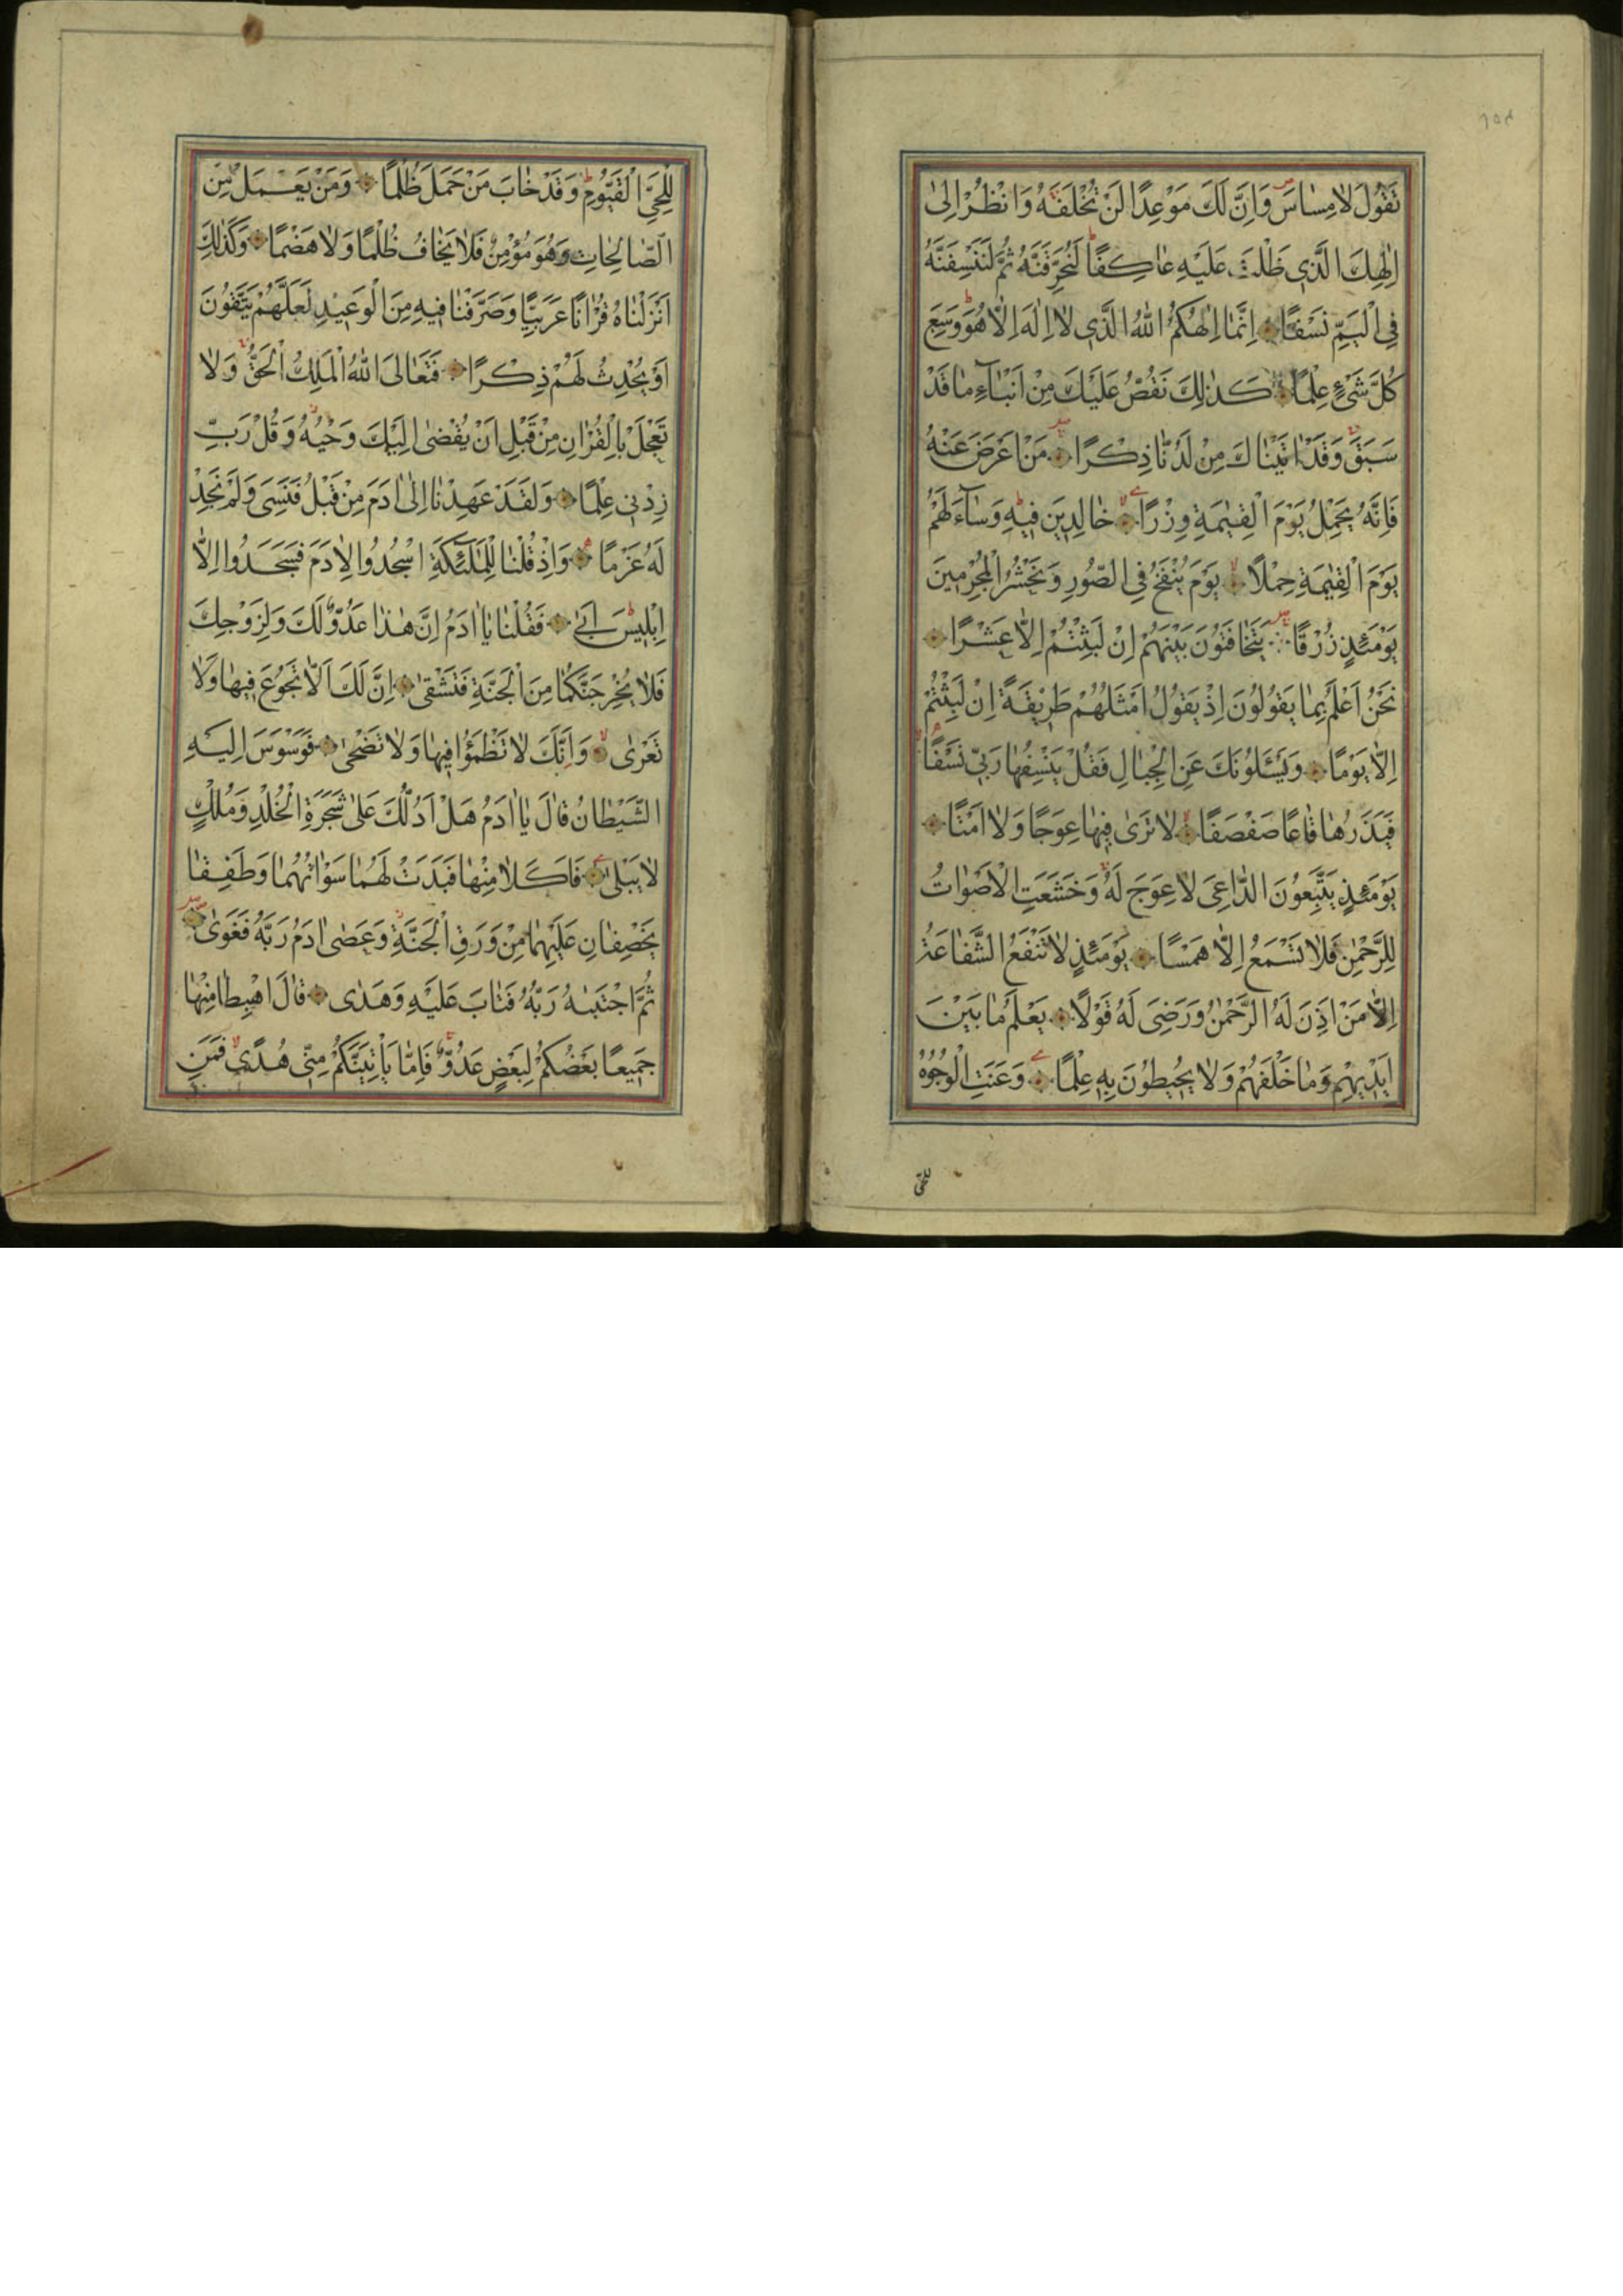 تَقُولَ لَا مِسَاسَ وَاِنَّ لَكَ مَوْعِدًا لَنْ تُخْلَفَهُ وَانْظُرْ اِلٰى
اِلٰهِكَ الَّذِى ظَلْتَ عَلَيْهِ عَاكِفًا لَنُحَرِّقَنَّهُ ثُمَّ لَنَنْسِفَنَّهُ
فِى الْيَمِّ نَسْفًا اِنَّمَا اِلٰهُكُمُ اللّٰهُ الَّذِى لَا اِلٰهَ اِلَّا هُوَ وَسِعَ
كُلَّ شَىْءٍ عِلْمًا كَذٰلِكَ نَقُصُّ عَلَيْكَ مِنْ اَنْبَآءِ مَا قَدْ
سَبَقَ وَقَدْ اٰتَيْنَاكَ مِنْ لَدُنَّا ذِكْرًا مَنْ اَعْرَضَ عَنْهُ
فَاِنَّهُ يَحْمِلُ يَوْمَ الْقِيٰمَةِ وِزْرًا خَالِدِينَ فِيهِ وَسَآءَ لَهُمْ
يَوْمَ الْقِيٰمَةِ حِمْلًا يَوْمَ يُنْفَخُ فِى الصُّورِ وَنَحْشُرُ الْمُجْرِمِينَ
يَوْمَئِذٍ زُرْقًا يَتَخَافَتُونَ بَيْنَهُمْ اِنْ لَبِثْتُمْ اِلَّا عَشْرًا
نَحْنُ اَعْلَمُ بِمَا يَقُولُونَ اِذْ يَقُولُ اَمْثَلُهُمْ طَرِيقَةً اِنْ لَبِثْتُمْ
اِلَّا يَوْمًا وَيَسْئَلُونَكَ عَنِ الْجِبَالِ فَقُلْ يَنْسِفُهَا رَبِّى نَسْفًا
فَيَذَرُهَا قَاعًا صَفْصَفًا لَا تَرٰى فِيهَا عِوَجًا وَلَا اَمْتًا
يَوْمَئِذٍ يَتَّبِعُونَ الدَّاعِىَ لَا عِوَجَ لَهُ وَخَشَعَتِ الْاَصْوَاتُ
لِلرَّحْمٰنِ فَلَا تَسْمَعُ اِلَّا هَمْسًا يَوْمَئِذٍ لَا تَنْفَعُ الشَّفَاعَةُ
اِلَّا مَنْ اَذِنَ لَهُ الرَّحْمٰنُ وَرَضِىَ لَهُ قَوْلًا يَعْلَمُ مَا بَيْنَ
اَيْدِيهِمْ وَمَا خَلْفَهُمْ وَلَا يُحِيطُونَ بِهِ عِلْمًا وَعَنَتِ الْوُجُوهُ
للحى
لِلْحَىِّ الْقَيُّومِ وَقَدْ خَابَ مَنْ حَمَلَ ظُلْمًا وَمَنْ يَعْمَلْ مِنَ
الصَّالِحَاتِ وَهُوَ مُؤْمِنٌ فَلَا يَخَافُ ظُلْمًا وَلَا هَضْمًا وَكَذٰلِكَ
اَنْزَلْنَاهُ قُرْاٰنًا عَرَبِيًّا وَصَرَّفْنَا فِيهِ مِنَ الْوَعِيدِ لَعَلَّهُمْ يَتَّقُونَ
اَوْ يُحْدِثُ لَهُمْ ذِكْرًا فَتَعَالَى اللّٰهُ الْمَلِكُ الْحَقُّ وَلَا
تَعْجَلْ بِالْقُرْاٰنِ مِنْ قَبْلِ اَنْ يُقْضٰى اِلَيْكَ وَحْيُهُ وَقُلْ رَبِّ
زِدْنِى عِلْمًا وَلَقَدْ عَهِدْنَا اِلٰى اٰدَمَ مِنْ قَبْلُ فَنَسِىَ وَلَمْ نَجِدْ
لَهُ عَزْمًا وَاِذْ قُلْنَا لِلْمَلٰئِكَةِ اسْجُدُوا لِاٰدَمَ فَسَجَدُوا اِلَّا
اِبْلِيسَ اَبٰى فَقُلْنَا يَا اٰدَمُ اِنَّ هٰذَا عَدُوٌّ لَكَ وَلِزَوْجِكَ
فَلَا يُخْرِجَنَّكُمَا مِنَ الْجَنَّةِ فَتَشْقٰى اِنَّ لَكَ اَلَّا تَجُوعَ فِيهَا وَلَا
تَعْرٰى وَاَنَّكَ لَا تَظْمَؤُا فِيهَا وَلَا تَضْحٰى فَوَسْوَسَ اِلَيْهِ
الشَّيْطَانُ قَالَ يَا اٰدَمُ هَلْ اَدُلُّكَ عَلٰى شَجَرَةِ الْخُلْدِ وَمُلْكٍ
لَا يَبْلٰى فَاَكَلَا مِنْهَا فَبَدَتْ لَهُمَا سَوْاٰتُهُمَا وَطَفِقَا
يَخْصِفَانِ عَلَيْهِمَا مِنْ وَرَقِ الْجَنَّةِ وَعَصٰى اٰدَمُ رَبَّهُ فَغَوٰى
ثُمَّ اجْتَبٰيهُ رَبُّهُ فَتَابَ عَلَيْهِ وَهَدٰى قَالَ اهْبِطَا مِنْهَا
جَمِيعًا بَعْضُكُمْ لِبَعْضٍ عَدُوٌّ فَاِمَّا يَاْتِيَنَّكُمْ مِنِّى هُدًى فَمَنِ